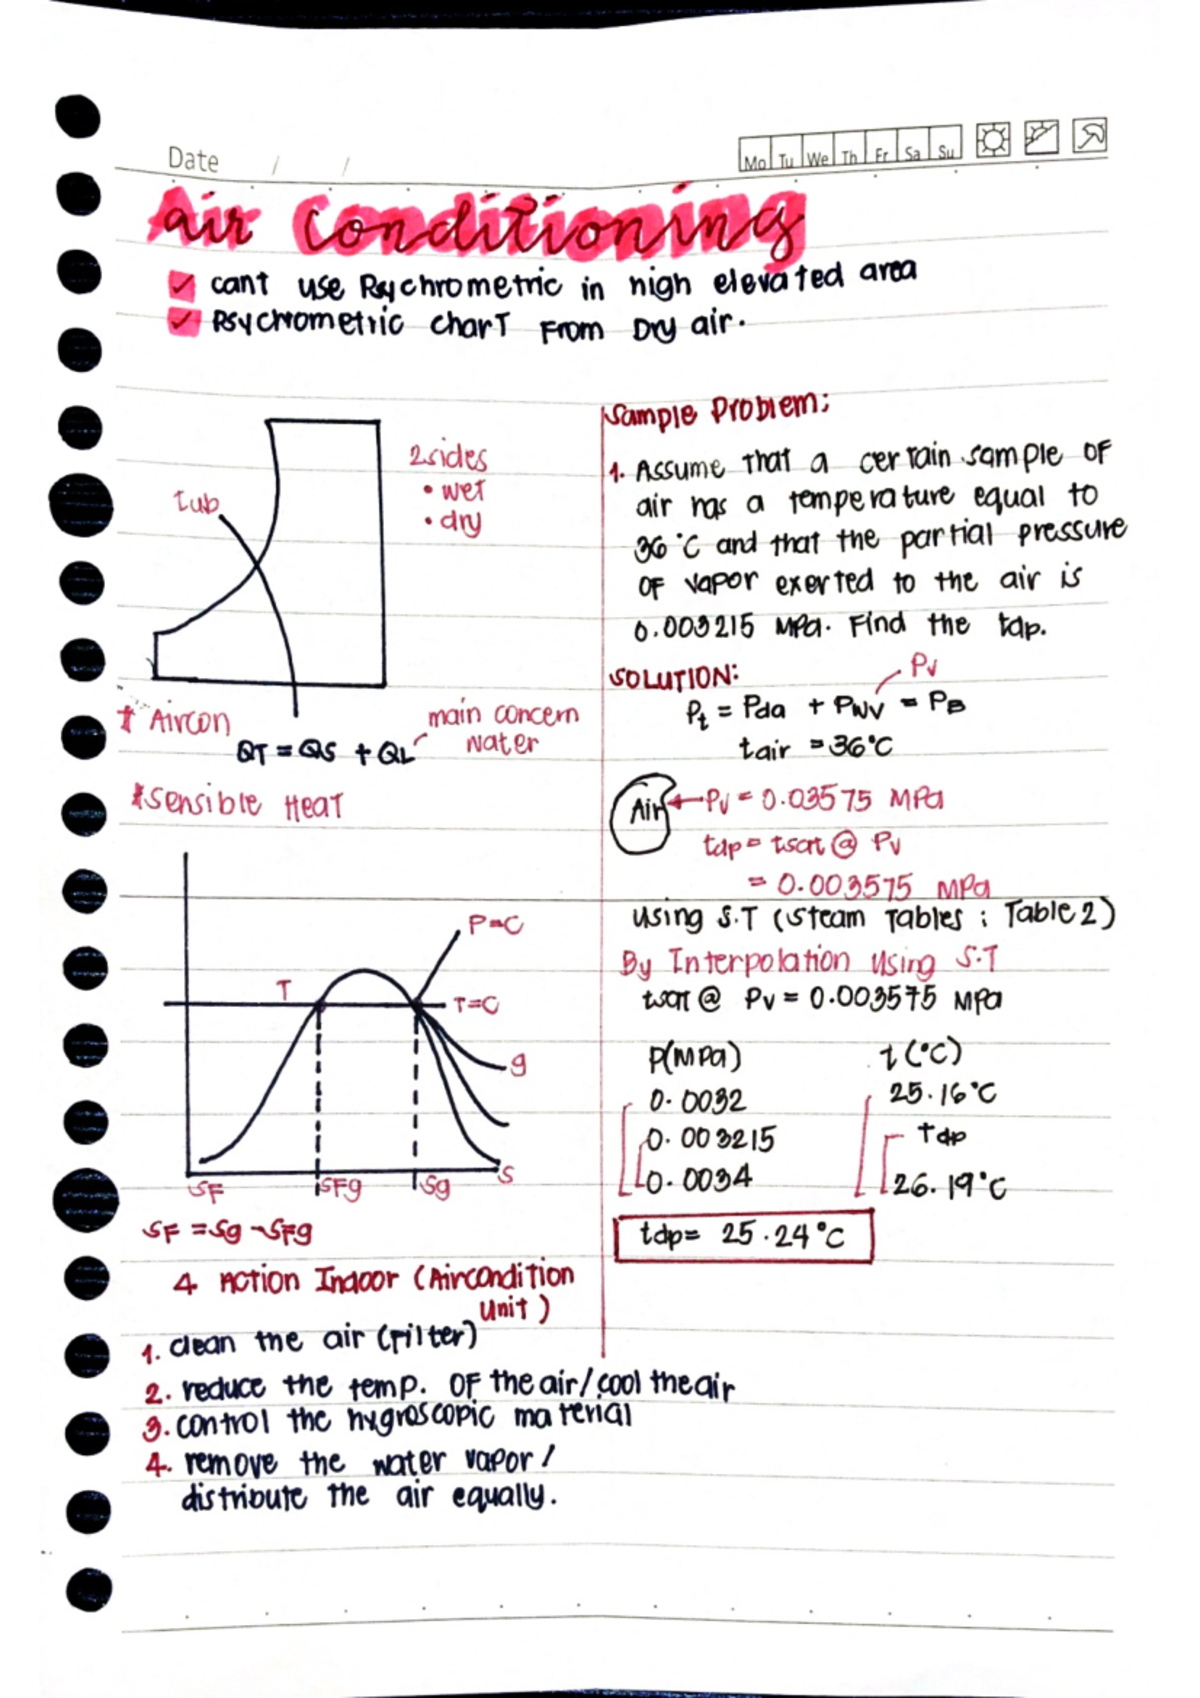 Date / /
Mo Tu We Th Fr Sa Su
Air Conditioning
✓ cant use Psychrometric in high elevated area
✓ Psychrometric chart From Dry air.
tub
2 sides
• wet
• dry
Aircon
QT = QS + QL
main concern
water
*Sensible Heat
P=C
T
T=C
g
S
SF
SFg
Sg
SF = Sg - SFg
4 Action Indoor (Aircondition
Unit)
1. clean the air (filter)
2. reduce the temp. OF the air/cool the air
3. control the hygroscopic material
4. remove the water vapor /
distribute the air equally.
Sample Problem:
1. Assume that a certain sample OF
air has a temperature equal to
36°C and that the partial pressure
OF vapor exerted to the air is
0.003215 MPa. Find the tdp.
SOLUTION:
Pv
Pt = Pda + Pwv = PB
tair = 36°C
Air
Pv = 0.03575 MPa
tdp = tsat @ Pv
= 0.003575 MPa
using S.T (Steam Tables ; Table 2)
By Interpolation Using S.T
tsat @ Pv = 0.003575 MPa
P(MPa) t(°C)
0.0032 25.16°C
0.003215 tdp
0.0034 26.19°C
tdp = 25.24°C